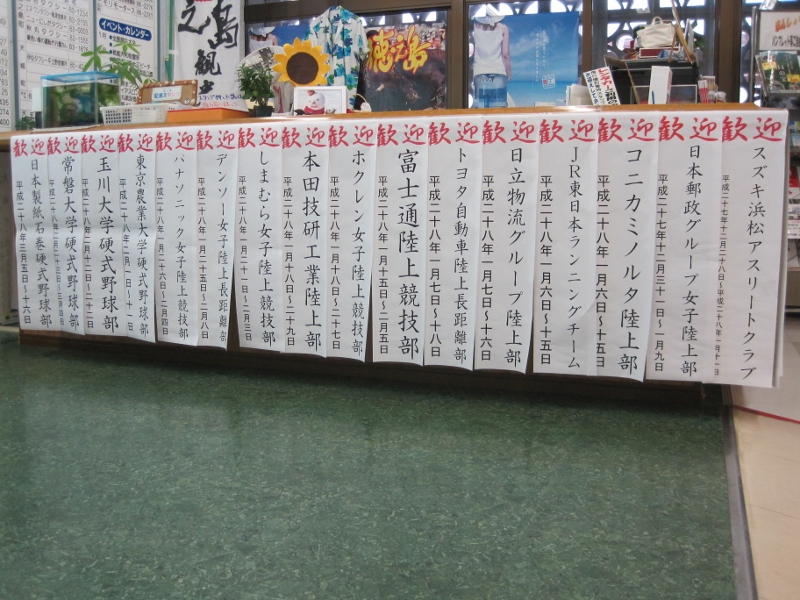 歓迎
スズキ浜松アスリートクラブ
歓迎
日本郵政グループ女子陸上部
平成二十七年十二月三十一日~一月九日
歓迎
コニカミノルタ陸上部
平成二十八年一月六日~十五日
歓迎
JR東日本ランニングチーム
平成二十八年一月六日~十五日
歓迎
日立物流グループ陸上部
平成二十八年一月七日~十六日
歓迎
トヨタ自動車陸上長距離部
平成二十八年一月七日~十八日
歓迎
富士通陸上競技部
平成二十八年一月十五日~二月五日
歓迎
ホクレン女子陸上競技部
平成二十八年一月十八日~二十七日
歓迎
本田技研工業陸上部
平成二十八年一月十八日~二十九日
歓迎
しまむら女子陸上競技部
平成二十八年一月二十一日~二月三日
歓迎
デンソー女子陸上長距離部
平成二十八年一月二十五日~二月八日
歓迎
パナソニック女子陸上競技部
歓迎
東京農業大学硬式野球部
平成二十八年二月一日~十一日
歓迎
玉川大学硬式野球部
平成二十八年二月十二日~二十二日
歓迎
常磐大学硬式野球部
歓迎
日本製紙石巻硬式野球部
平成二十八年三月五日~十六日
徳之島
イベント・カレンダー